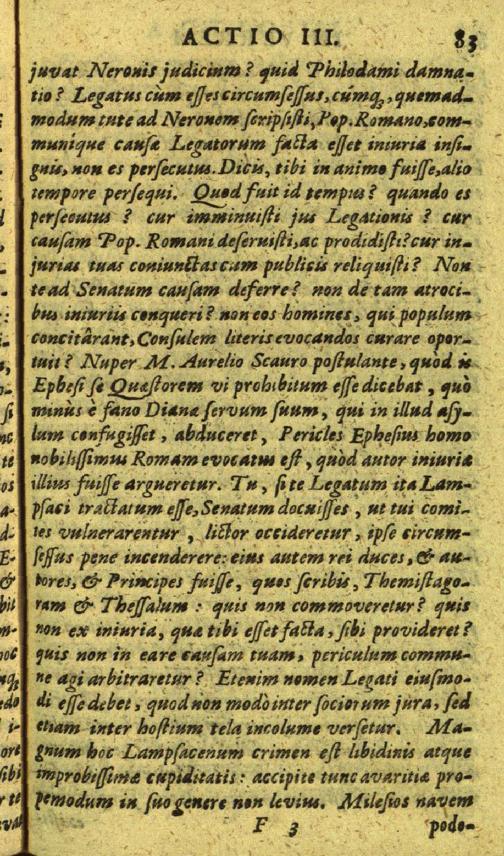 ACTIO III. 83
juvat Neronis judicium? quid Philodami damna-
tio? Legatus cùm esses circumsessus, cúmq;, quemad-
modum tute ad Neronem scripsisti, Pop. Romano, com-
munique causæ Legatorum facta esset iniuria insi-
gnis, non es persecutus. Dicis, tibi in animo fuisse, alio
tempore persequi. Quod fuit id tempus? quando es
persecutus? cur imminuisti jus Legationis? cur
causam Pop. Romani deseruisti, ac prodidisti? cur in-
jurias tuas coniunctas cum publicis reliquisti? Non
te ad Senatum causam deferre? non de tam atroci-
bus iniuriis conqueri? non eos homines, qui populum
concitârant, Consulem literis evocandos curare opor-
tuit? Nuper M. Aurelio Scauro postulante, quòd is
Ephesi se Quæstorem vi prohibitum esse dicebat, quò
minùs è fano Dianæ servum suum, qui in illud asy-
lum confugisset, abduceret, Pericles Ephesius homo
nobilissimus Romam evocatus est, quòd autor iniuriæ
illius fuisse argueretur. Tu, si te Legatum ita Lam-
psaci tractatum esse, Senatum docuisses, ut tui comi-
tes vulnerarentur, lictor occideretur, ipse circum-
sessus pene incenderere: eius autem rei duces, & au-
tores, & Principes fuisse, quos scribis, Themistago-
ram & Thessalum: quis non commoveretur? quis
non ex iniuria, quæ tibi esset facta, sibi provideret?
quis non in ea re causam tuam, periculum commu-
ne agi arbitraretur? Etenim nomen Legati eiusmo-
di esse debet, quod non modò inter sociorum jura, sed
etiam inter hostium tela incolume versetur. Ma-
gnum hoc Lampsacenum crimen est libidinis atque
improbissimæ cupiditatis: accipite tunc avaritiæ pro-
pemodum in suo genere non levius. Milesios navem
F 3 podo-